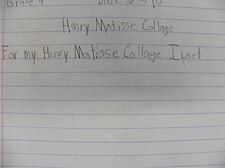 Grade 4 Date
Henry Matisse Collage
For my Henry Matisse Collage I used